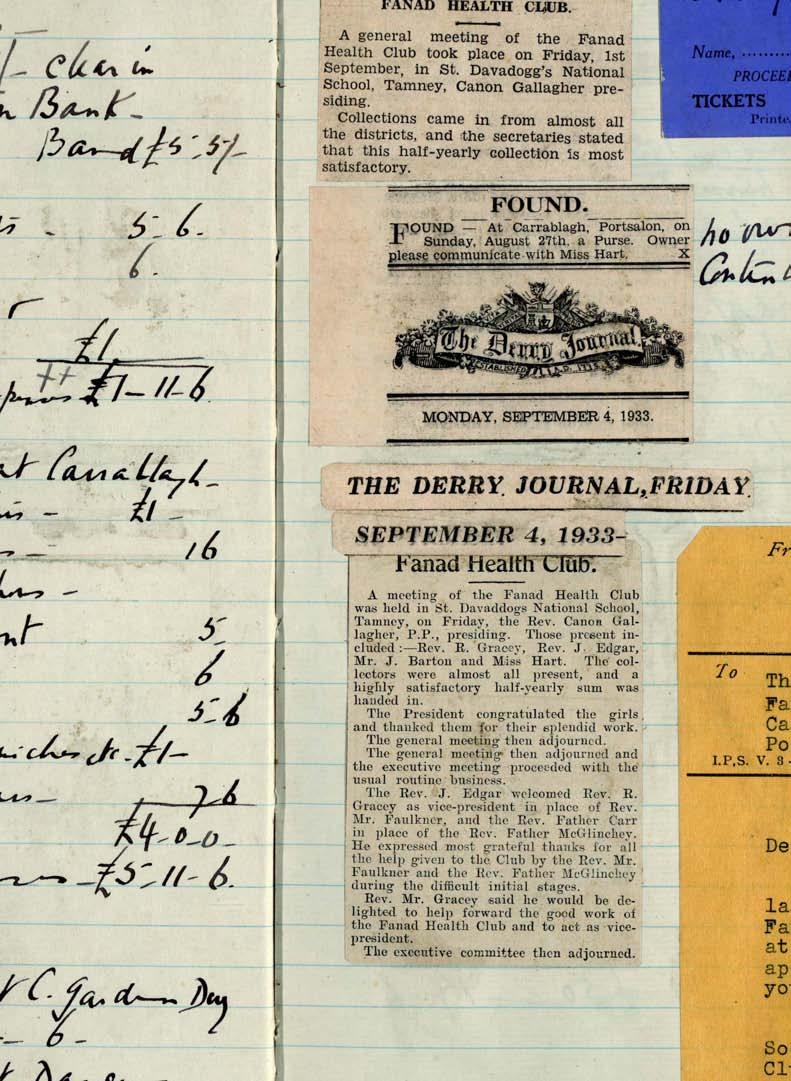 /- char in
Bank-
Band £5-5/-
5-6.
6.
£1
++
£1-11-6
at Carrablagh-
£1-
16
5
6
5-6
£1-
7 6
£4-0-0-
£5-11-6.
C. Garden Day
6-
FANAD HEALTH CLUB.
A general meeting of the Fanad
Health Club took place on Friday, 1st
September, in St. Davadogg's National
School, Tamney, Canon Gallagher pre-
siding.
Collections came in from almost all
the districts, and the secretaries stated
that this half-yearly collection is most
satisfactory.
FOUND.
FOUND — At Carrablagh, Portsalon, on
Sunday, August 27th, a Purse. Owner
please communicate with Miss Hart. X
The Derry Journal.
ESTABLISHED A.D. 1772
MONDAY, SEPTEMBER 4, 1933.
THE DERRY JOURNAL, FRIDAY
SEPTEMBER 4, 1933-
Fanad Health Club.
A meeting of the Fanad Health Club
was held in St. Davaddogs National School,
Tamney, on Friday, the Rev. Canon Gal-
lagher, P.P., presiding. Those present in-
cluded :—Rev. R. Gracey, Rev. J. Edgar,
Mr. J. Barton and Miss Hart. The col-
lectors were almost all present, and a
highly satisfactory half-yearly sum was
handed in.
The President congratulated the girls
and thanked them for their splendid work.
The general meeting then adjourned.
The general meeting then adjourned and
the executive meeting proceeded with the
usual routine business.
The Rev. J. Edgar welcomed Rev. R.
Gracey as vice-president in place of Rev.
Mr. Faulkner, and the Rev. Father Carr
in place of the Rev. Father McGlinchey.
He expressed most grateful thanks for all
the help given to the Club by the Rev. Mr.
Faulkner and the Rev. Father McGlinchey
during the difficult initial stages.
Rev. Mr. Gracey said he would be de-
lighted to help forward the good work of
the Fanad Health Club and to act as vice-
president.
The executive committee then adjourned.
Name, ........
PROCEE
TICKETS
Printe
no own
Conten
Fr
To
Th
Fa
Ca
Po
I.P.S. V. 3-
De
la
Fa
at
ap
yo
So
Cl